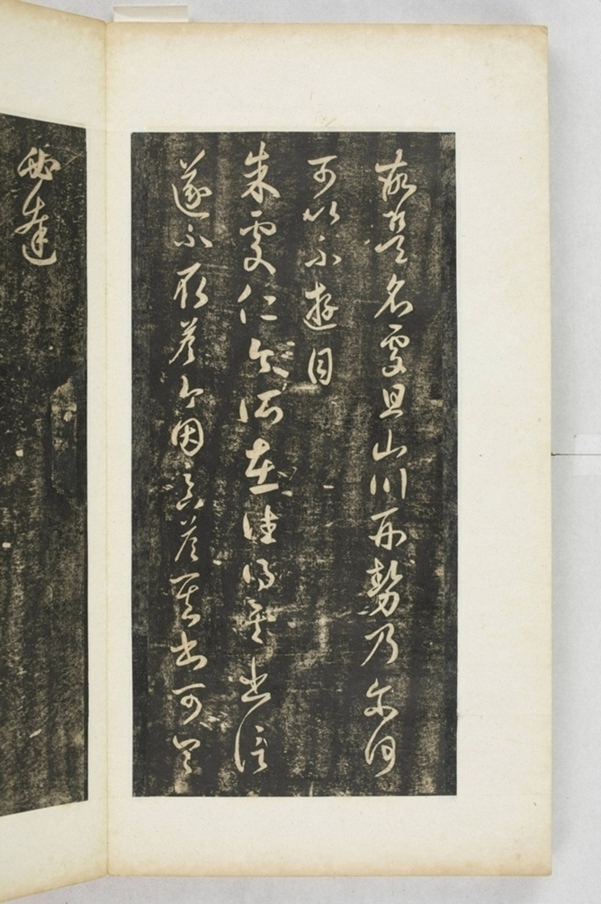 故是名處且山川形勢乃爾何
可以不遊目
朱處仁今所在往得其書信
遂不取答今因足下答其書可令
必達